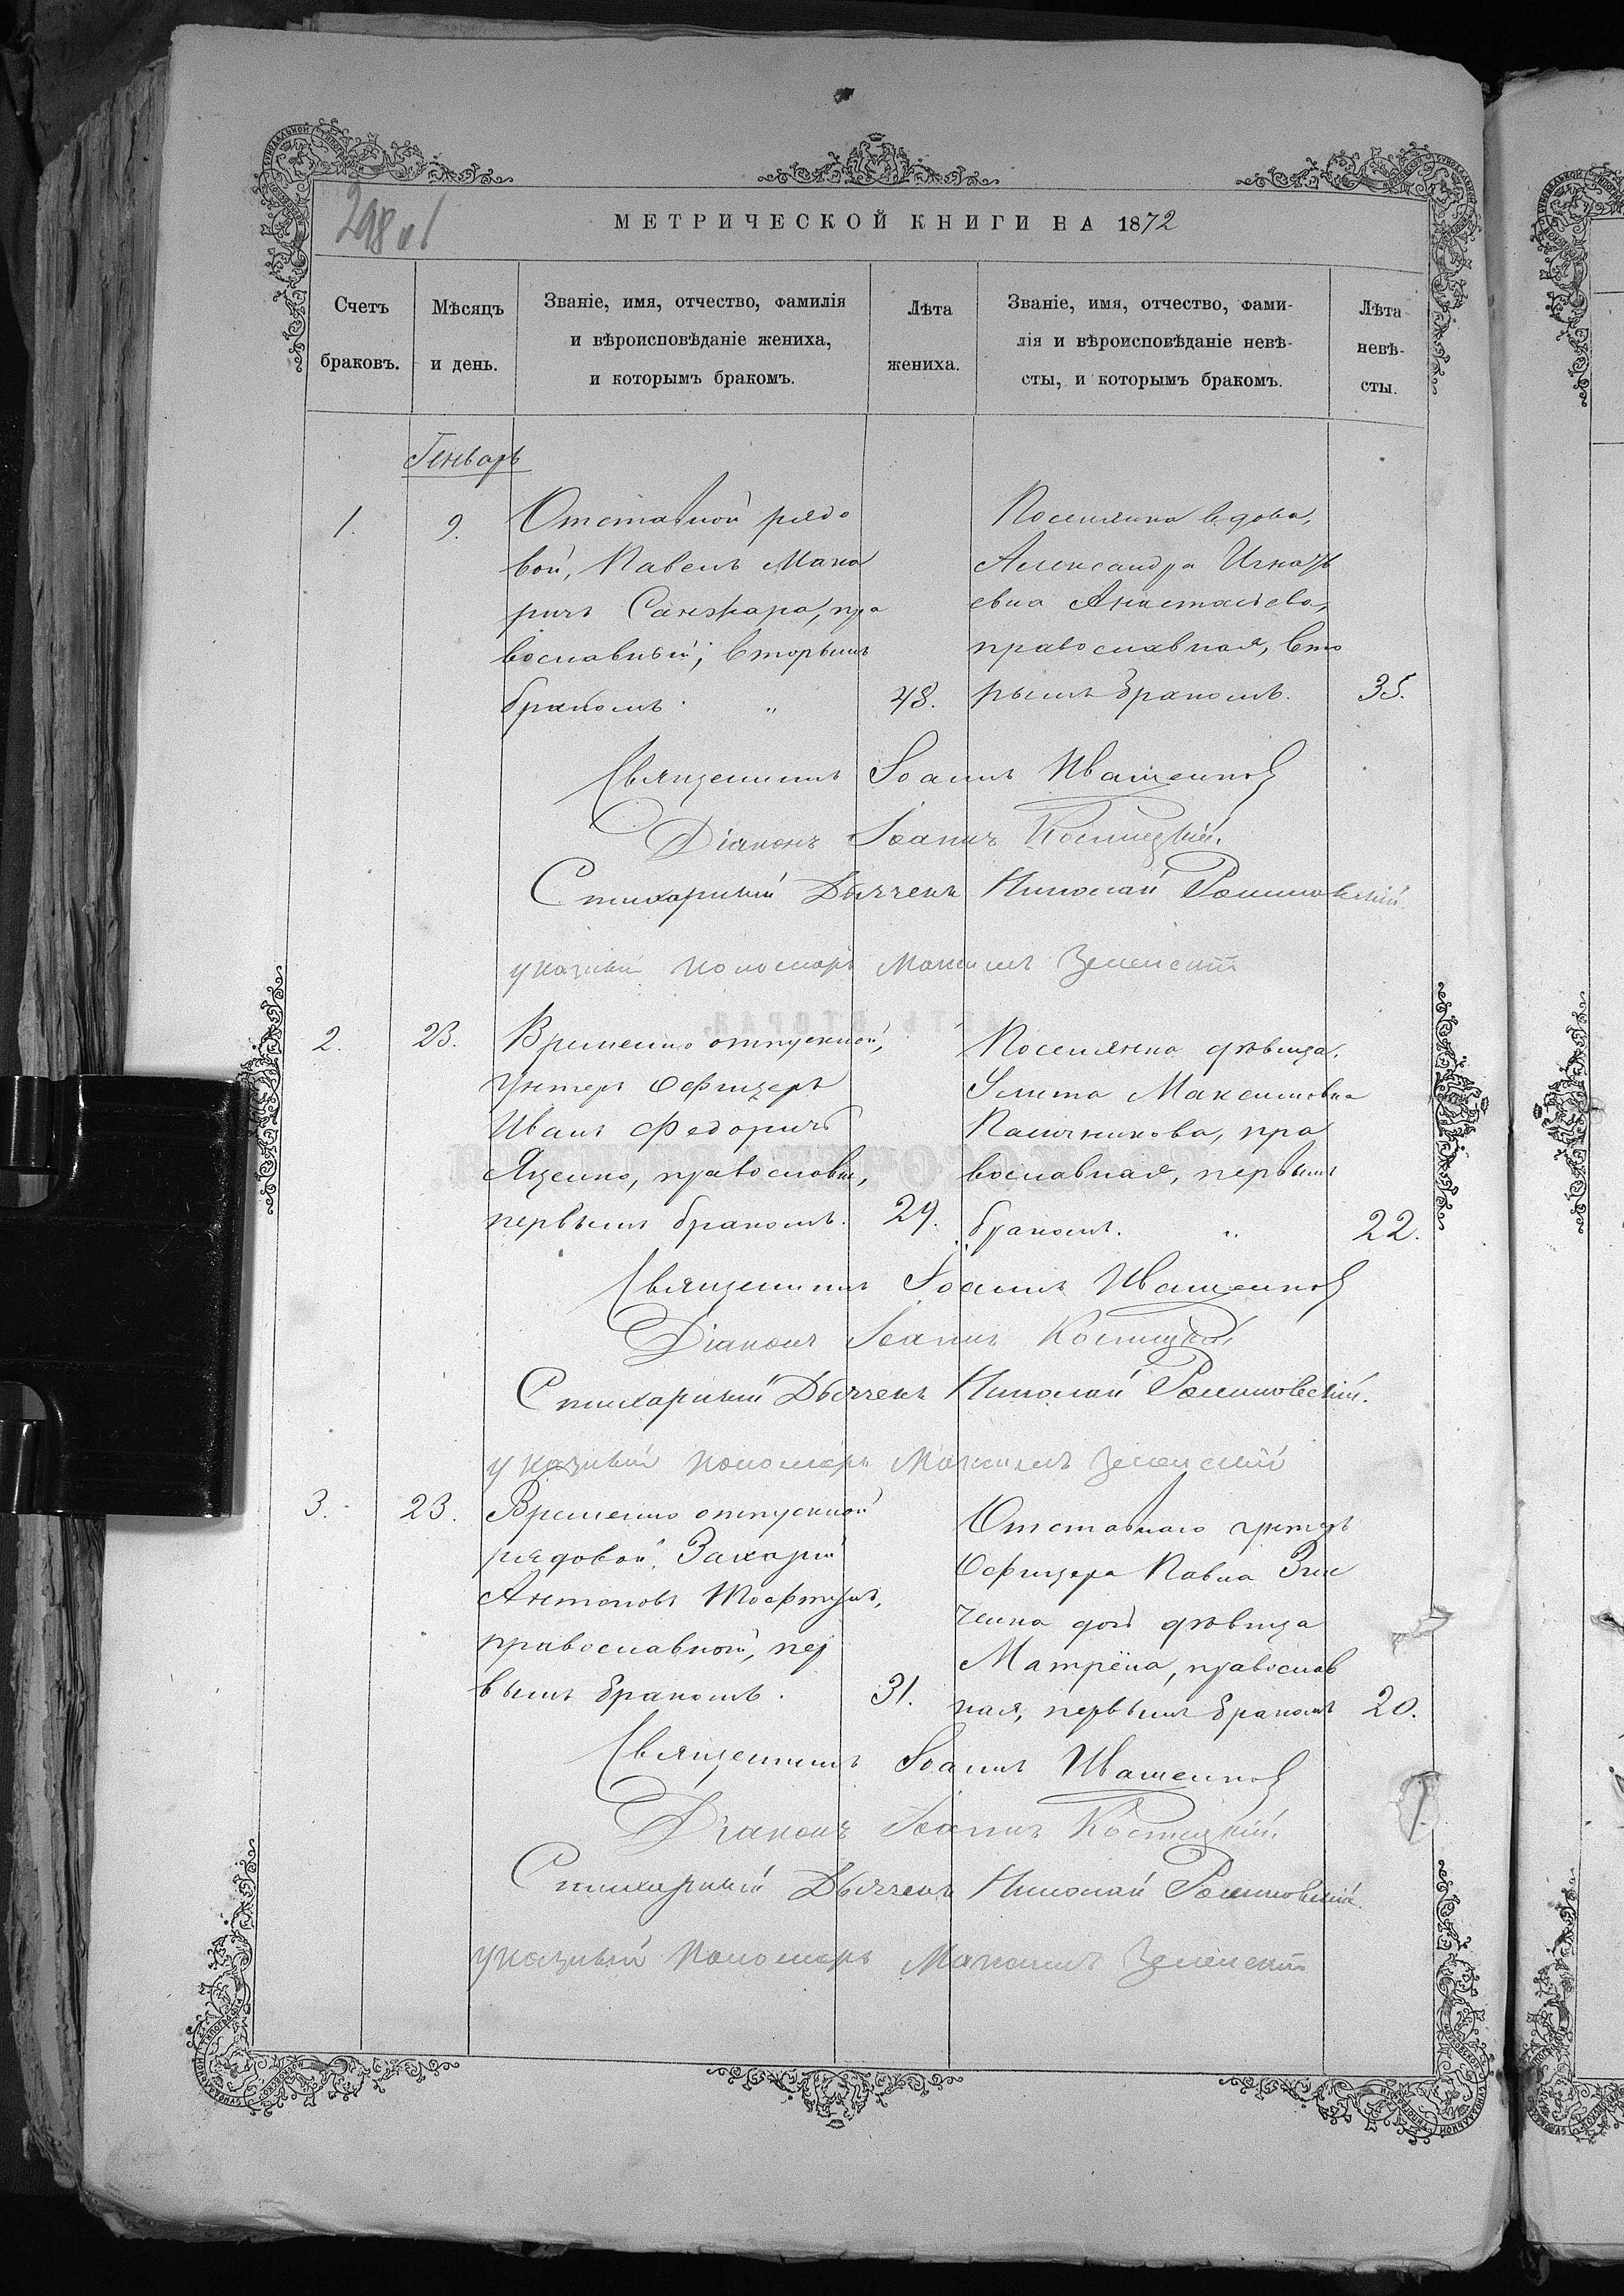 298 об
МЕТРИЧЕСКОЙ КНИГИ НА 1872
Счетъ браковъ.
Мѣсяцъ и день.
Званіе, имя, отчество, фамилія
и вѣроисповѣданіе жениха,
и которымъ бракомъ.
Лѣта жениха.
Званіе, имя, отчество, фами-
лія и вѣроисповѣданіе невѣ-
сты, и которымъ бракомъ.
Лѣта невѣ-
сты.
Генварь
1.
9.
Отставной рядо
вой, Павелъ Мака
ричъ Санжара, пра
вославный, вторымъ
бракомъ. "
48.
Поселянка вдова,
Александра Игнать
евна Анистасьева,
православная, вто
рымъ бракомъ.
35.
Священникъ Іоаннъ Иващенков
Діаконъ Іоаннъ Костицкій.
Стихарный Дьячекъ Николай Романовскій.
указный пономарь Максимъ Зеленскій
2.
23.
Временно отпускной,
унтеръ офицеръ
Иванъ Федоричъ
Яценко, православн,
первымъ бракомъ.
29.
Поселянка дѣвица.
Улита Максимовна
Пасичникова, пра
вославная, первымъ
бракомъ. "
22.
Священникъ Іоаннъ Иващенков
Діаконъ Іоаннъ Костицкій
Стихарный Дьячекъ Николай Романовскій.
указный пономарь Максимъ Зеленскій
3.
23.
Временно отпускной
рядовой, Захарій
Антоновъ
православной, пер
вымъ бракомъ.
31.
Отставнаго унтеръ
Офицера Павла Зин
ченка дочь дѣвица
Матрёна, православ
ная, первымъ бракомъ
20.
Священникъ Іоаннъ Иващенков
Діаконъ Іоаннъ Костицкій.
Стихарный Дьячекъ Николай Романовскій.
указный пономарь Максимъ Зеленскій